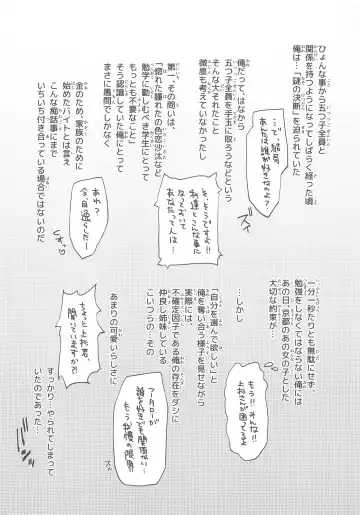 ひょんな事から五つ子全員と
関係を持つようになってしばらく経った頃
俺は…「謎の決断」を迫られていた
俺だって、はなから
五つ子全員を手玉に取ろうなどという
そんな大それたこと
微塵も考えていなかったし
第一、その問いは、
「惚れた腫れたの色恋沙汰など
勉学に勤しむべき学生にとって
もっとも不要なこと」
そう認識していた俺にとって
まさに愚問でしかなく
金のため、家族のために
始めたバイトとは言え
こんな痴話事にまで
いちいち付き合っている場合ではないのだ
で…結局
あんたは誰が好きなのよ?
そ…そうですよ!!
私達とこんな事に
なっておいて
あなたって人は…
あれ?
今日逸らしたー
一分一秒たりとも無駄にせず、
勉強をしなくてはならない俺には
あの日、京都のあの女の子とした
大切な約束が…
「自分を選んで欲しい」と
俺を奪い合う様子を見せながら
実際には、
不確定因子である俺の存在をダシに
仲良し姉妹している
こいつらの…その
あまりの可愛いらしさに
すっかり…やられてしまって
いたのであった…
もう!!みんな!!
上杉さんが困ってるよ
フータローが
誰を好きでも関係ない…
もう我慢の限界!!
ちょっと上杉君、
聞いていますか?!